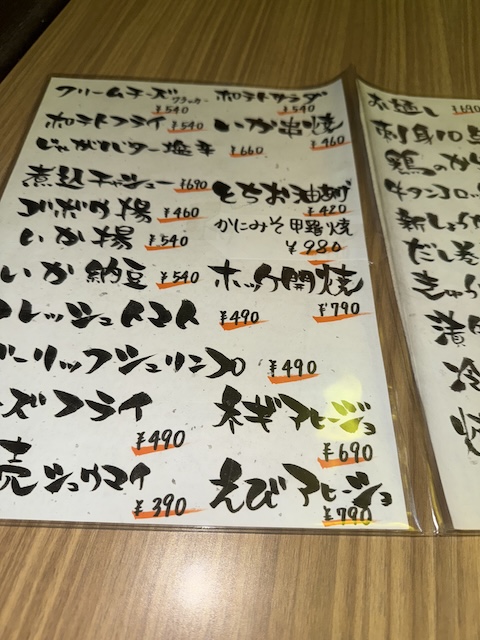 クリームチーズクラッカー ¥540
ポテトサラダ ¥540
ポテトフライ ¥540
いか串焼 ¥460
じゃがバター塩辛 ¥660
煮込チャシュー ¥690
とちお油あげ ¥420
ゴボウ揚 ¥460
かにみそ甲羅焼 ¥980
いか揚 ¥540
いか納豆 ¥540
ホッケ開焼 ¥790
レッシュトマト ¥490
ーリックシュリンプ ¥490
ーズフライ ¥490
ネギアヒージョ ¥690
売シュウマイ ¥390
えびアヒージョ ¥790
¥690
刺身10
鶏のか
牛タンコロッ
新しょうが
だし巻
きゅう
漬
冷
焼